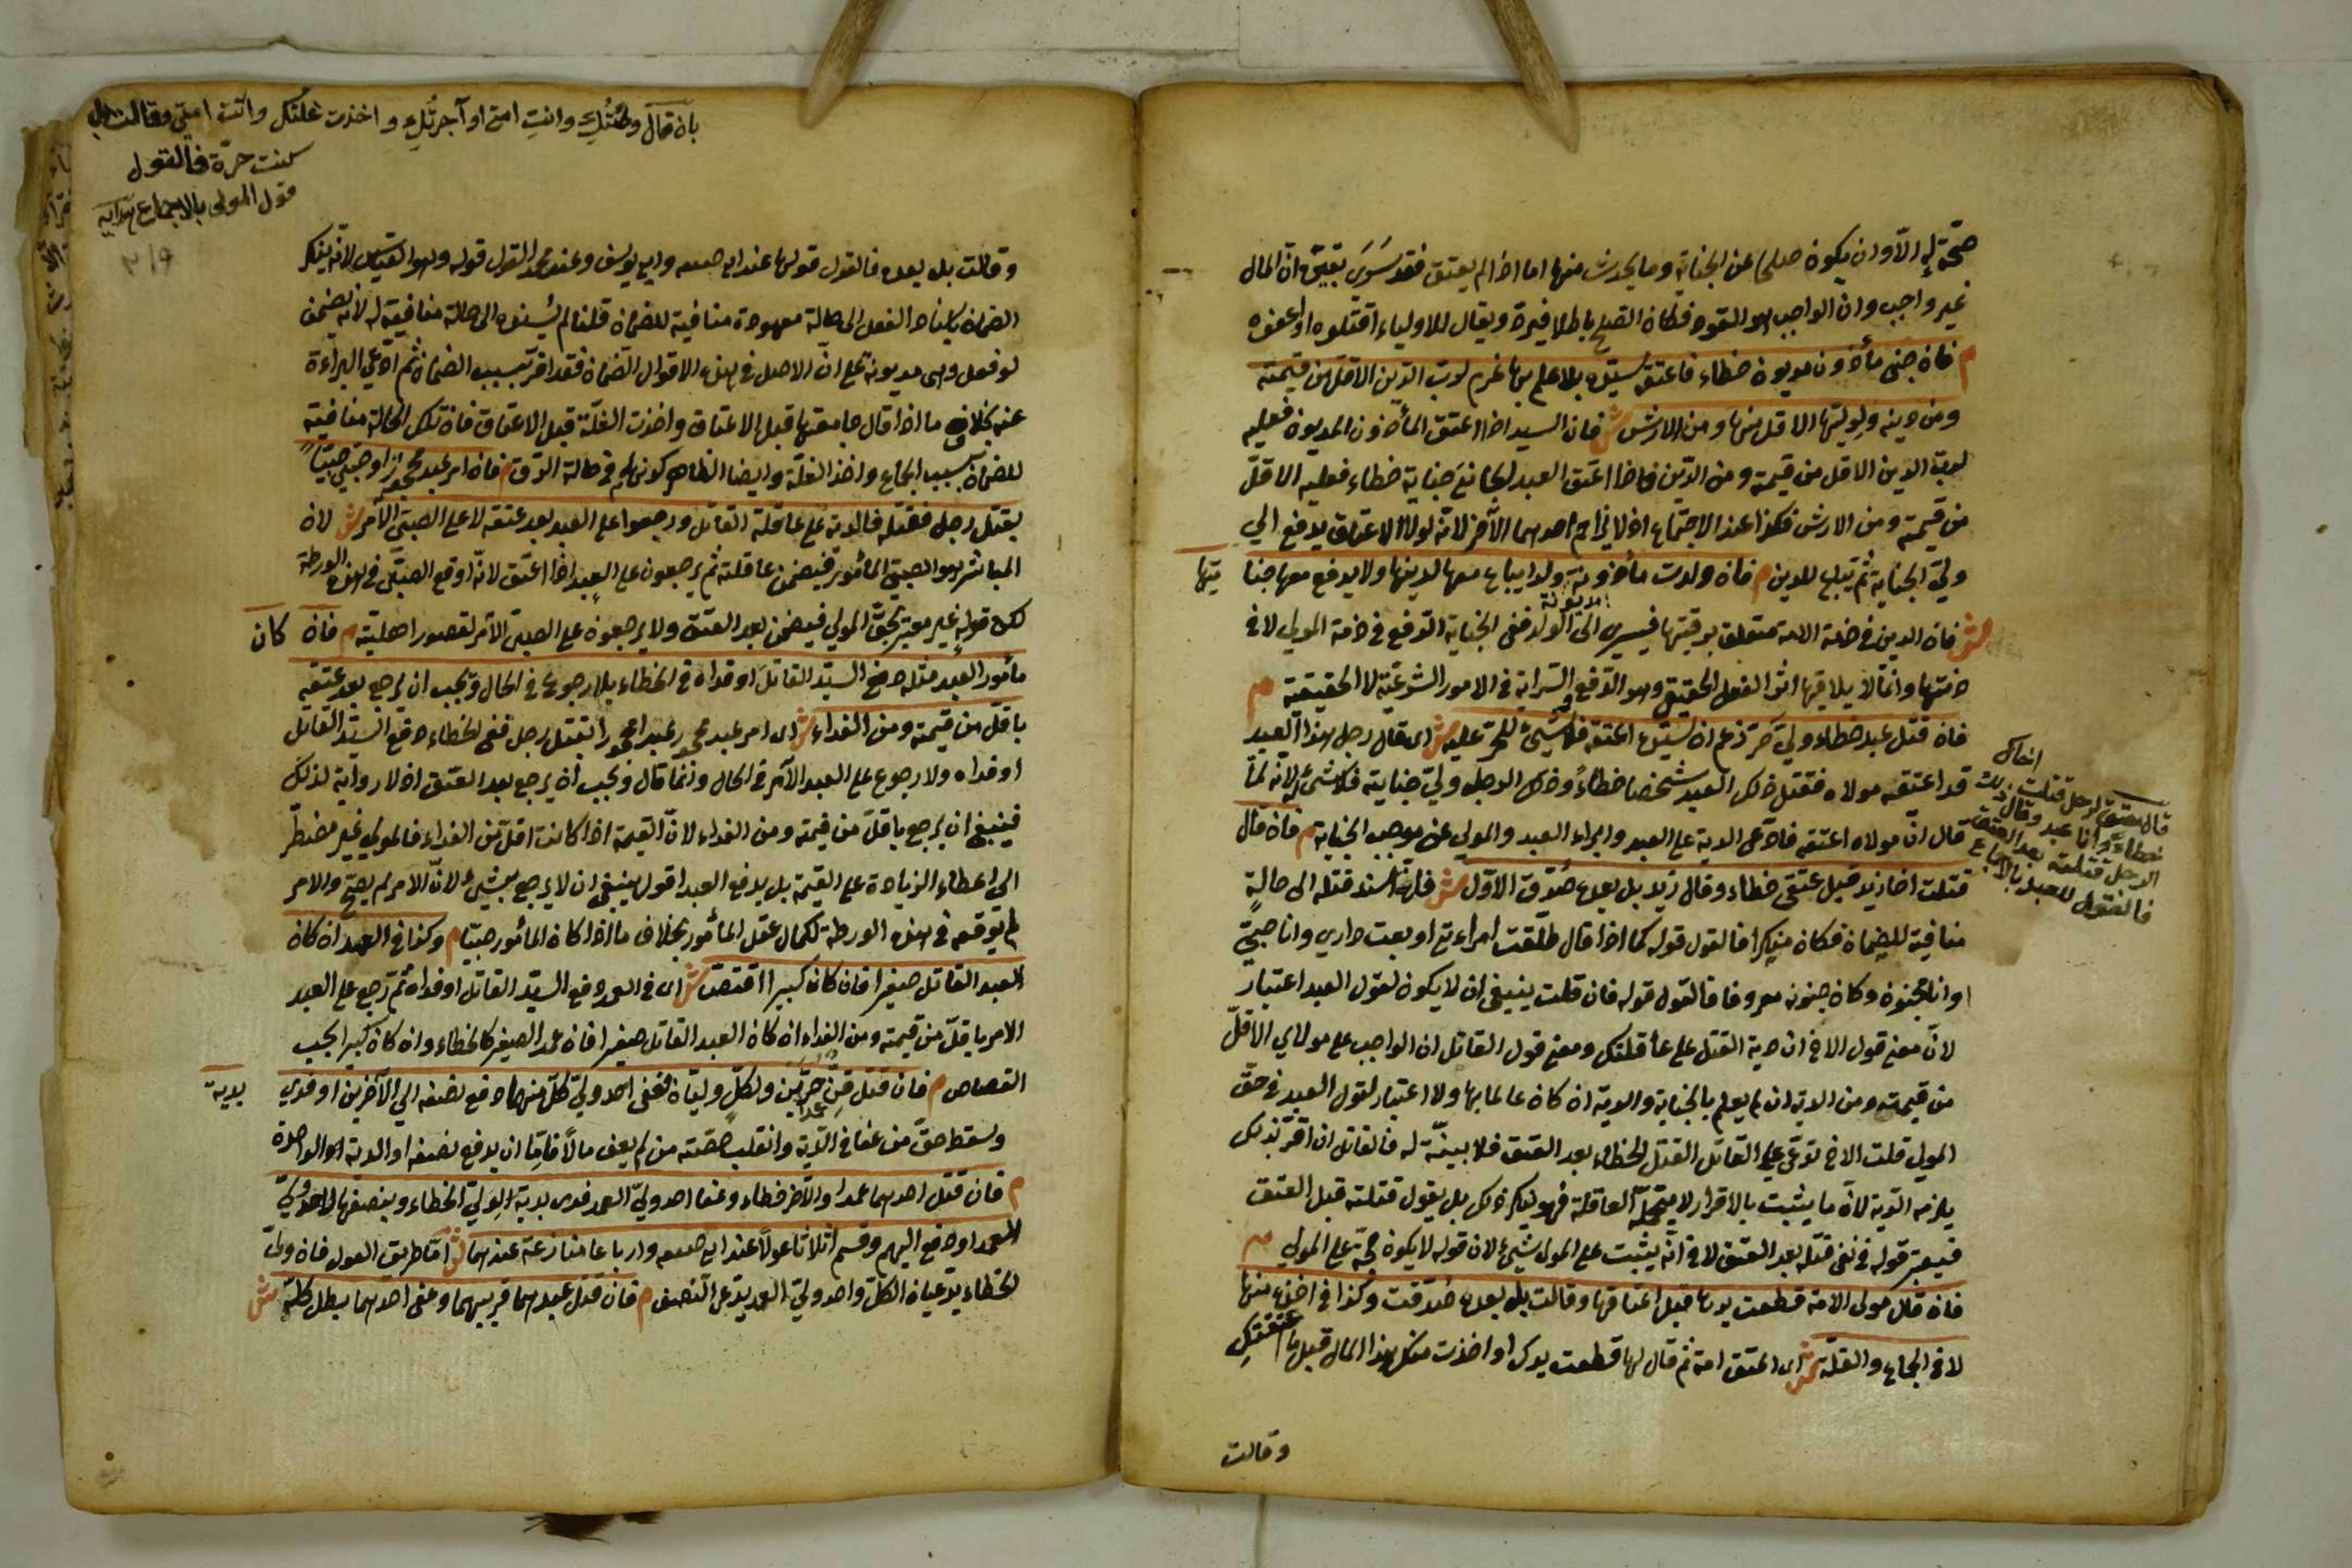 صحّة له الا وان يكون صلحا عن الجناية وما يحدث منها اما اذا لم يعتق فقد سرى تبيّن ان المال
غير واجب وان الواجب هو القود فكان الصلح باطلا فيردّ ويقال للاولياء اقتلوه او اعفوه
م فان جنى مأذون مديون خطاء فاعتقه سيّده بلا علم بها غرم لربّ الدين الاقل من قيمته
ومن دينه ولوليّها الاقل منها ومن الارش ش فان السيد اذا اعتق المأذون المديون فعليه
لربّ الدين الاقل من قيمته ومن الدين فاذا اعتق العبد الجاني جناية خطاء فعليه الاقلّ
من قيمته ومن الارش فكذا عند الاجتماع اذ لا يزاحم احدهما الآخر لانّه لولا الاعتاق يدفع الى
وليّ الجناية ثم يباع للدين م فان ولدت مأذونة مديونة ولدا يباع معها لدينها ولا يدفع معها جنا يتها
ش فان الدين في ذمة الامة متعلق برقبتها فيسرى الى الولد ففى الجناية الدفع في ذمة المولى لا في
ذمتها وانما يلاقيها اثر الفعل الحقيقي وهو الدفع والسراية في الامور الشرعيّة لا الحقيقية م
فان قتل عبد خطاء وليّ حرّ زعم ان سيّده اعتقه فلا شيء للحرّ عليه ش اى قال رجل هذا العبد
قد اعتقه مولاه فقتل ذلك العبد شخصا خطاءً وذلك الرجل وليّ جنايته فلا شيء له لانه لمّا
قال انّ مولاه اعتقه فادّعى الدية على العبد وابراء العبد والمولى عن موجب الجناية م فان قال
قتلت اخا زيد قبل عتقى خطاء وقال زيد بل بعده صُدّق الاوّل ش فانه اسند قتله الى حالةٍ
منافية للضمان فكان منكرا فالقول قوله كما اذا قال طلّقت امراءتي او بعت داري وانا صبيّ
او انا مجنون وكان جنونه معروفا فالقول قوله فان قلت ينبغى ان لا يكون لقول العبد اعتبار
لانّ معنى قول الاخ ان دية القتل على عاقلتك ومعنى قول القاتل ان الواجب على مولاي الاقلّ
من قيمته ومن الدية ان لم يعلم بالجناية والدية ان كان عالما بها ولا اعتبار لقول العبد في حقّ
المولى قلت الاخ يدّعى على القاتل القتل الخطاء بعد العتق فلا بينّة له فالقاتل ان اقرّ بذلك
يلزمه الدية لانّ ما يثبت بالاقرار لا يتحمّله العاقلة فهو ينكر ذلك بل يقول قتلته قبل العتق
فيعتبر قوله في نفى قتله بعد العتق لا في انّه يثبت على المولى شيء لان قوله لا يكون حجّة على المولى م
فان قال مولى الامة قطعت يدها قبل اعتاقها وقالت بل بعده صُدّقت وكذا في اخذه منها
لا في الجماع والغلّة ش اى اعتق امة ثم قال لها قطعت يدك او اخذت منك هذا المال قبل ما اعتقتكِ
وقالت
قال معتق لرجل قتلت اخاك
خطاءً وانا عبد وقال ذلك
الرجل قتلته بعد العتق
فالقول للعبد بالاجماع
بان قال وطئتُكِ وانتِ امة او آجرتُكِ واخذت غلّتك وانت امتى وقالت بل
كنت حرّة فالقول
قول المولى بالاجماع هدايه
٣١٩
وقالت بل بعده فالقول قولها عند ابى حنيفه وابى يوسف وعند محمد القول قوله وهو القياس لانّه ينكر
الضمان باسناد الفعل الى حالة معهودة منافية للضمان قلنا لم يُسنده الى حالة منافية له لانّه يضمن
لو فعل وهى مديونة على انّ الاصل في هذه الاقوال الضمان فقد اقرّ بسبب الضمان ثم ادّعى البراءة
عنه بخلاف ما اذا قال جامعتها قبل الاعتاق واخذت الغلّة قبل الاعتاق فان تلك الحالة منافية
للضمان بسبب الجماع واخذ الغلّة وايضا الظاهر كونهما في حالة الرّق م فان امر عبد محجور او صبي صبيّاً
بقتل رجل فقتله فالدية على عاقلة القاتل ورجعوا على العبد بعد عتقه لا على الصبيّ الآمر ش لان
المباشر هو الصبيّ المأمور فيضمن عاقلته ثم يرجعون على العبد اذا اعتق لانّه اوقع الصبيّ في هذه الورطة
لكن قوله غير معتبر بحقّ المولى فيضمن بعد العتق ولا يرجعون على الصبى الآمر لقصور اهليته م فان كان
مأمور العبد مثله دفع السيّد القاتل او فداه في الخطاء بلا رجوع في الحال ويجب ان يرجع بعد عتقه
باقلّ من قيمته ومن الفداء ش اى امر عبد محجور عبدا محجورا بقتل رجل ففى الخطاء دفع السيّد القاتل
او فداه ولا رجوع على العبد الآمر في الحال وانما قال ويجب ان يرجع بعد العتق اذ لا رواية لذلك
فينبغى ان يرجع باقلّ من قيمته ومن الفداء لانّ القيمة اذا كانت اقلّ من الفداء فالمولى غير مضطرّ
الى اعطاء الزيادة على القيمة بل يدفع العبد اقول ينبغى ان لا يرجع بشيء لانّ الامر لم يصحّ والامر
لم يوقعه في هذه الورطة لكمال عقل المأمور بخلاف ما اذا كان المأمور صبيّا م وكذا في العمد ان كان
العبد القاتل صغيرا فان كان كبيرا اقتصّ ش اى في العمد دفع السيّد القاتل او فداه ثم رجع على العبد
الامر باقلّ من قيمته ومن الفداء ان كان العبد القاتل صغيرا فان عمد الصغير كالخطاء وان كان كبيرا يجب
القصاص م فان قتل قنّ عمدا حرّين ولكلٍّ وليّان فعفى احد وليّ كلّ منهما دفع نصفه الى الآخرين او فدى بدية
ش وسقط حقّ من عفا في الدية وانقلب حصّته من لم يعف مالاً فامّا ان يدفع نصفه او الدية الواحدة
م فان قتل احدهما عمدا والآخر خطاء وعفا احد وليّ العمد فدى بدية لوليّ الخطاء وبنصفها لاحد وليّ
العمد او دفع اليهم وقسم اثلاثا عولاً عند ابى حنيفه وارباعا منازعة عندهما ش امّا طريق العول فان وليّ
الخطاء يدّعيان الكلّ وواحد وليّ العمد يدّعى النصف م فان قتل عبدهما قريبهما وعفى احدهما بطل كلّه ش